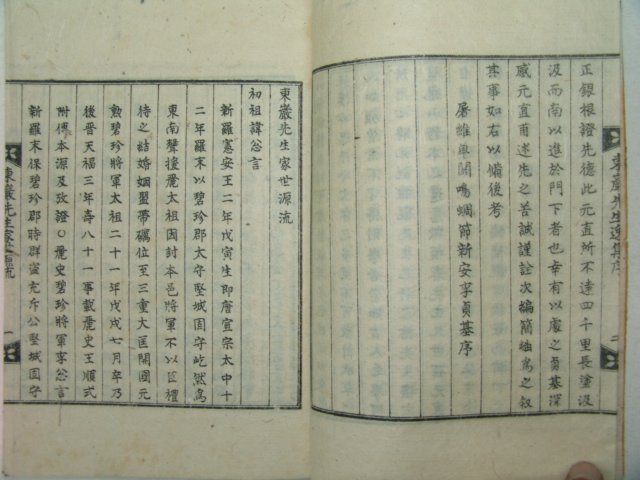 正銀根證先德此元直所不達四千里長塗汲
汲而南以進於門下者也幸有以處之貞基深
感元直甫述先之苦誠謹詮次編簡紬爲之叙
其事如右以備後考
屠維單閼鳴蜩節新安李貞基序
東巖先生逸集序
二
東巖先生家世源流
初祖諱忩言
新羅憲安王二年戊寅生即唐宣宗太中十
二年羅末以碧珍郡太守堅城固守屹然爲
東南聲援麗太祖因封本邑將軍不以臣禮
待之結婚姻盟帶礪位至三重大匡開國元
勳碧珍將軍太祖二十一年戊戌七月卒乃
後晉天福三年壽八十一事載麗史王順式
附傳本源及攷證○麗史碧珍將軍李忩言
新羅末保碧珍郡時群盜充斥公堅城固守
東巖先生家世源流
一